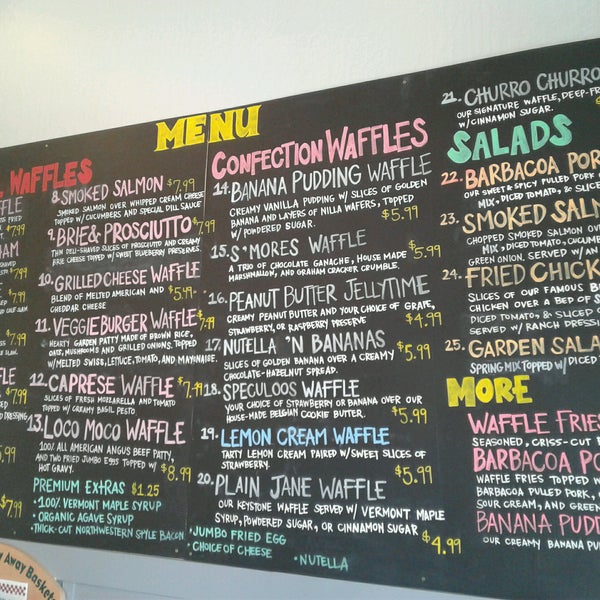 MENU
WAFFLES
$7.99
$7.99
$7.99
$7.99
8. SMOKED SALMON $7.99
SMOKED SALMON OVER WHIPPED CREAM CHEESE
TOPPED W/ CUCUMBERS AND SPECIAL DILL SAUCE
9. BRIE & PROSCIUTTO $7.99
THIN DELI-SHAVED SLICES OF PROSCIUTTO AND CREAMY
BRIE CHEESE TOPPED W/ SWEET BLUEBERRY PRESERVES.
10. GRILLED CHEESE WAFFLE
BLEND OF MELTED AMERICAN AND $5.99
CHEDDAR CHEESE
11. VEGGIE BURGER WAFFLE $7.99
HEARTY GARDEN PATTY MADE OF BROWN RICE,
OATS, MUSHROOMS AND GRILLED ONIONS. TOPPED
W/ MELTED SWISS, LETTUCE, TOMATO, AND MAYONAISE.
12. CAPRESE WAFFLE $7.99
SLICES OF FRESH MOZZARELLA AND TOMATO
TOPPED W/ CREAMY BASIL PESTO.
13. LOCO MOCO WAFFLE
100% ALL AMERICAN ANGUS BEEF PATTY,
AND TWO FRIED JUMBO EGGS TOPPED W/
HOT GRAVY. $8.99
PREMIUM EXTRAS $1.25
• 100% VERMONT MAPLE SYRUP
• ORGANIC AGAVE SYRUP
• THICK-CUT NORTHWESTERN STYLE BACON
• JUMBO FRIED EGG
• CHOICE OF CHEESE
• NUTELLA
CONFECTION WAFFLES
14. BANANA PUDDING WAFFLE
CREAMY VANILLA PUDDING W/ SLICES OF GOLDEN
BANANA AND LAYERS OF NILLA WAFERS, TOPPED
W/ POWDERED SUGAR. $5.99
15. S'MORES WAFFLE
A TRIO OF CHOCOLATE GANACHE, HOUSE MADE $5.99
MARSHMALLOW, AND GRAHAM CRACKER CRUMBLE.
16. PEANUT BUTTER JELLYTIME
CREAMY PEANUT BUTTER AND YOUR CHOICE OF GRAPE,
STRAWBERRY, OR RASPBERRY PRESERVE $4.99
17. NUTELLA 'N BANANAS
SLICES OF GOLDEN BANANA OVER A CREAMY $5.99
CHOCOLATE-HAZELNUT SPREAD.
18. SPECULOOS WAFFLE
YOUR CHOICE OF STRAWBERRY OR BANANA OVER OUR
HOUSE-MADE BELGIAN COOKIE BUTTER. $5.99
19. LEMON CREAM WAFFLE
TARTY LEMON CREAM PAIRED W/ SWEET SLICES OF
STRAWBERRY. $5.99
20. PLAIN JANE WAFFLE
OUR KEYSTONE WAFFLE SERVED W/ VERMONT MAPLE
SYRUP, POWDERED SUGAR, OR CINNAMON SUGAR $4.99
21. CHURRO CHURRO
OUR SIGNATURE WAFFLE, DEEP-FR
W/ CINNAMON SUGAR.
SALADS
22. BARBACOA POR
OUR SWEET & SPICY PULLED PORK
MIX, DICED TOMATO, & SLICE
23. SMOKED SALM
CHOPPED SMOKED SALMON OVER
MIX, DICED TOMATO, CUCUMB
GREEN ONION. SERVED W/ AN
24. FRIED CHICK
SLICES OF OUR FAMOUS B
CHICKEN OVER A BED OF S
DICED TOMATO, & SLICED
SERVED W/ RANCH DRESSI
25. GARDEN SALA
SPRING MIX TOPPED W/ DICED
MORE
WAFFLE FRIES
SEASONED, CRISS-CUT
BARBACOA PO
WAFFLE FRIES TOPPED W/
BARBACOA PULLED PORK,
SOUR CREAM, AND GREEN
BANANA PUDD
OUR CREAMY BANANA PUD
Away Basket